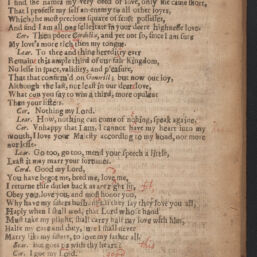 I find she named my very deed of love, only she came short,
That I professe my selfe an enemy to all other ioyes,
Which the most precious square of sense possesses,
And find I am alone felicitate in your deere highnesse loue.
Cor. Then poore Cordelia, and yet not so, since I am sure
My loue's more rich then my tongue.
Lear. To thee and thine hereditary euer
Remaine this ample third of our faire kingdom,
No lesse in space, validity, and pleasure,
That that confirm'd on Gonorill; but now our ioy,
Although the last, not least in our deere loue,
What can you say to win a third, more opulent
Then your sisters.
Cor. Nothing my Lord.
Lear. How, nothing can come of nothing, speake againe.
Cor. Vnhappy that I am, I cannot heaue my heart into my
mouth, I loue your Maiesty according to my bond, nor more
nor lesse.
Lear. Go too, go too, mend your speech a little,
Least it may marr your fortunes.
Cord. Good my Lord,
You haue begot me, bred me, loue me,
I returne those duties backe as are right fit,
Obey you, loue you, and most honor you,
Why haue my sisters husbands if they say they loue you all,
Haply when I shall wed, that Lord whose hand
Must take my plight, shall carry halfe my loue with him,
Halfe my care and duty, I shall neuer
Marry like my sisters, to loue my father all.
Lear. But goes with thy heart?
Cor. I good my Lord.